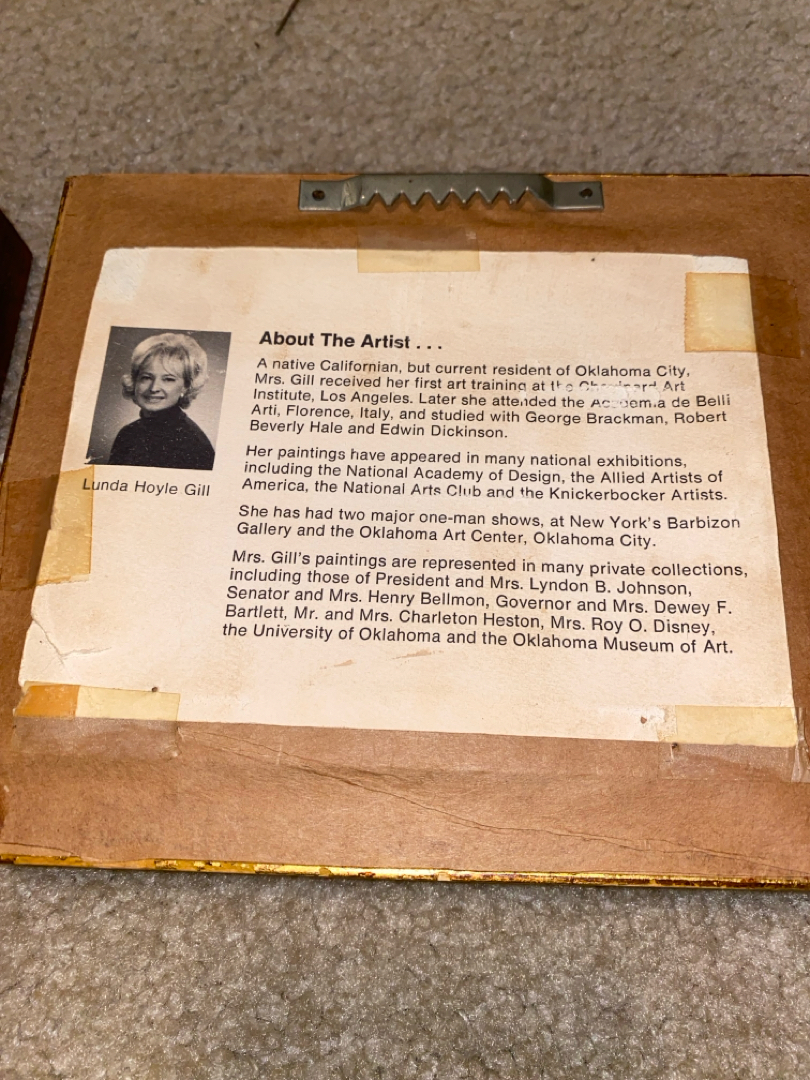 About The Artist . . .
A native Californian, but current resident of Oklahoma City,
Mrs. Gill received her first art training at the Art
Institute, Los Angeles. Later she attended the Academia de Belli
Arti, Florence, Italy, and studied with George Brackman, Robert
Beverly Hale and Edwin Dickinson.
Her paintings have appeared in many national exhibitions,
including the National Academy of Design, the Allied Artists of
America, the National Arts Club and the Knickerbocker Artists.
Lunda Hoyle Gill
She has had two major one-man shows, at New York's Barbizon
Gallery and the Oklahoma Art Center, Oklahoma City.
Mrs. Gill's paintings are represented in many private collections,
including those of President and Mrs. Lyndon B. Johnson,
Senator and Mrs. Henry Bellmon, Governor and Mrs. Dewey F.
Bartlett, Mr. and Mrs. Charleton Heston, Mrs. Roy O. Disney,
the University of Oklahoma and the Oklahoma Museum of Art.